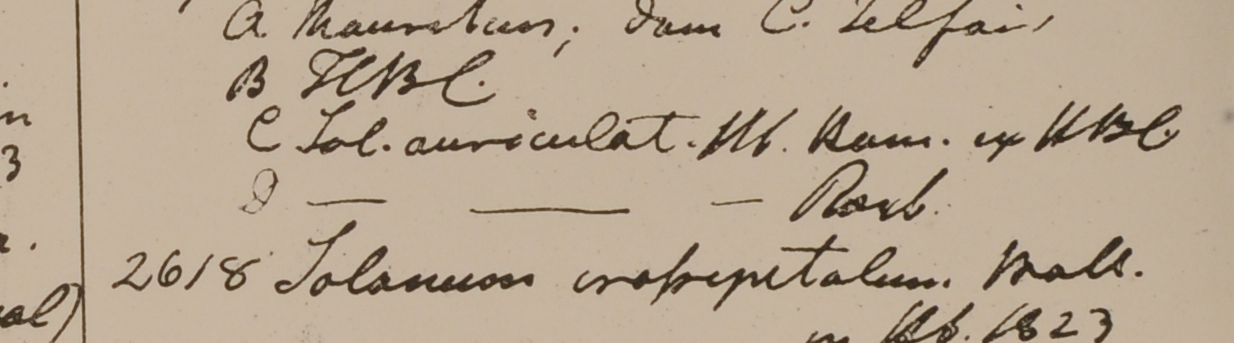 in
3
al)
A Mauritius; dom C. Telfair
B HBC.
C Sol. auriculat. Hb. Ham. ex HBC
D — — — Roxb.
2618 Solanum crassipetalum. Wall.
in Hb. 1823